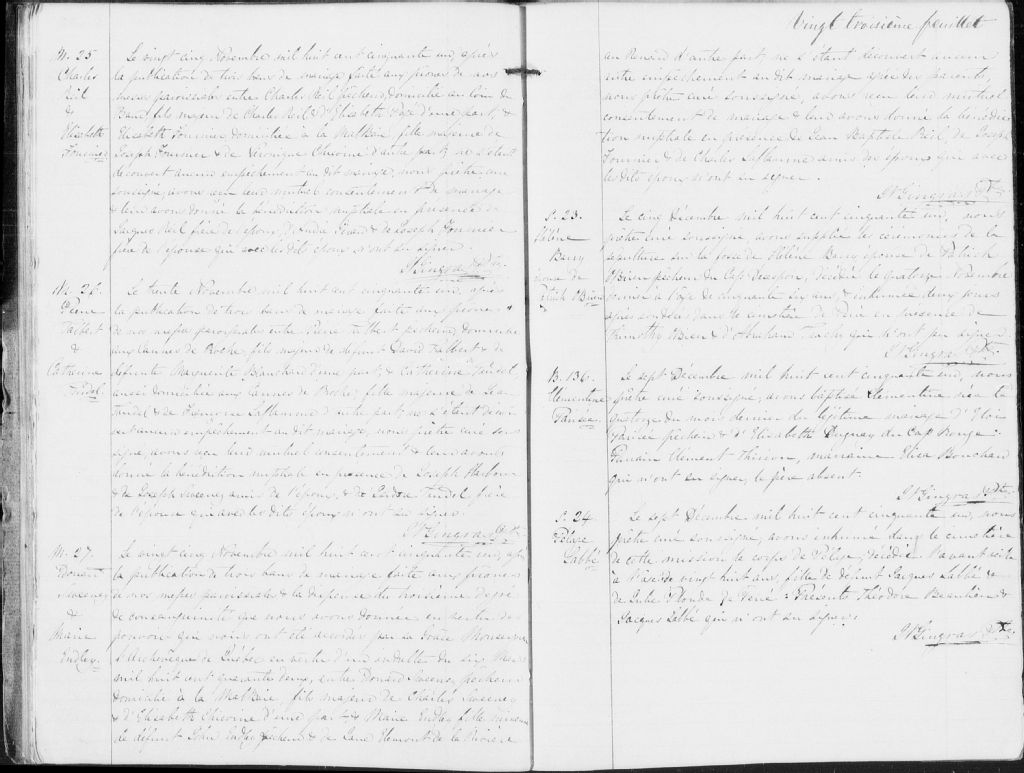 M. 25
Charles
Reil
&
Elisabeth
Fournier
Le vingt cinq Novembre mil huit cent cinquante un, après
la publication de trois bans de mariage faite aux prones de nos
messes paroissiales entre Charles Reil pêcheur domicilié au coin de
Banc, fils majeur de Charles Reil & d'Elisabeth d'une part, &
Elisabeth Fournier domiciliée à la Malbaie fille majeure de
Joseph Fournier & de Véronique Chicoine d'autre part; ne s'étant
découvert aucun empêchement au dit mariage, nous prêtre curé
soussigné, avons reçu leur mutuel consentement de mariage
& leur avons donné la bénédiction nuptiale en présence de
Jacques Reil frère de l'époux, d' & de Joseph Fournier
père de l'épouse qui avec les dits époux n'ont su signer.
N. Gingras Ptre
M. 26.
Pierre
Talbert
&
Catherine
Trudel.
Le trente Novembre mil huit cent cinquante un, après
la publication de trois bans de mariage faite aux prones
de nos messes paroissiales entre Pierre Talbert pêcheur, domicilié
aux Cannes de Roche, fils majeur de défunt David Talbert & de
défunte Marguerite Blanchard d'une part, & Catherine Trudel,
aussi domiciliée aux Cannes de Roche, fille majeure de Jean
Trudel & de Françoise Laflamme d'autre part, ne s'étant décou-
vert aucun empêchement au dit mariage, nous prêtre curé sous-
signé, avons reçu leur mutuel consentement & leur avons
donné la bénédiction nuptiale en présence de Joseph
& de Joseph Sweeney, amis de l'époux, & de Trudel, frère
de l'épouse qui avec les dits époux n'ont su signer.
N. Gingras Ptre
M. 27.
Donard
Sweeney
&
Marie
Endley.
Le vingt cinq Novembre mil huit cent cinquante un, après
la publication de trois bans de mariage faite aux prones
de nos messes paroissiales & la dispense du troisième degré
de consanguinité que nous avons donnée en vertu des
pouvoirs qui nous ont été accordés par sa Grace Monseigneur
l'Archevêque de Québec en vertu d'un indult du six Mars
mil huit cent quarante deux, entre Donard Sweeney pêcheur
domicilié à la Malbaie, fils majeur de Charles Sweeney
& d'Elisabeth Chicoine d'une part, & Marie Endley fille mineure
de défunt John Endley pêcheur & de Jane Clemont de la Rivière
Vingt troisième feuillet
au Renard d'autre part; ne s'étant découvert aucun
autre empêchement au dit mariage après dix parents,
nous prêtre curé soussigné, avons reçu leur mutuel
consentement de mariage & leur avons donné la bénédic-
tion nuptiale en présence de Jean Baptiste Reil, de Joseph
Fournier & de Charles Laflamme amis des époux qui avec
les dits époux n'ont su signer.
N. Gingras Ptre
S. 23.
Hélène
Barry
épouse de
Patrick O'Brien
Le cinq Décembre mil huit cent cinquante un, nous
prêtre curé soussigné, avons suppléé les cérémonies de la
sépulture sur la fosse de Hélène Barry épouse de Patrick
O'Brien pêcheur du Cap Desespoir, décédée le quatorze Novembre
dernier à l'age de cinquante six ans, & inhumée deux jours
après son décès dans le cimetière de en présence de
Timothy O'Brien & d'Abraham qui n'ont su signer.
N. Gingras Ptre
B. 136.
Clementine
Parisée.
Le sept Décembre mil huit cent cinquante un, nous
prêtre curé soussigné, avons baptisé Clementine née le
quatorze du mois dernier du légitime mariage d'Eloi
Parisée pêcheur & d'Elisabeth Duguay du Cap Rouge.
Parrain Clément Thivien, marraine Elisa Bouchard
qui n'ont su signer, le père absent.
N. Gingras Ptre
S. 24
Labbé
Le sept Décembre mil huit cent cinquante un, nous
prêtre curé soussigné, avons inhumé dans le cimetière
de cette mission le corps de décédée l'avant veille
à l'age de vingt huit ans, fille de défunt Jacques Labbé &
de Julie Plonde Présents Théodore Beaulieu &
Jacques Labbé qui n'ont su signer.
N. Gingras Ptre